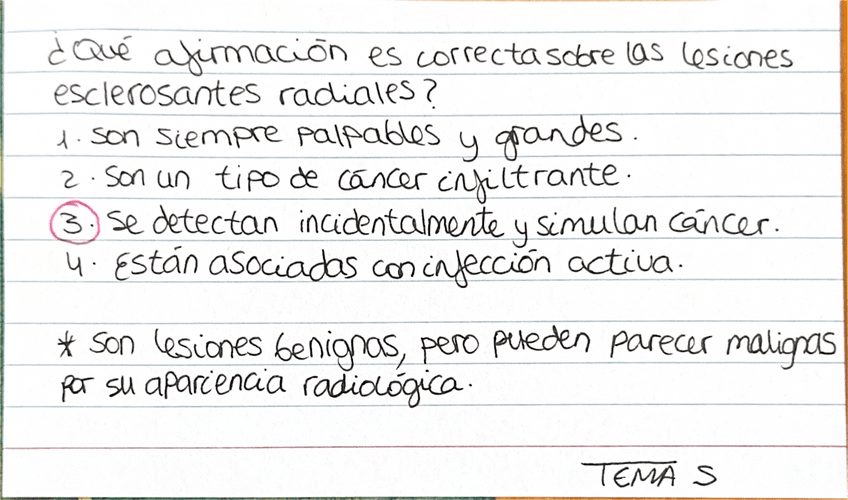 ¿Qué afirmación es correcta sobre las lesiones
esclerosantes radiales?
1. Son siempre palpables y grandes.
2. Son un tipo de cáncer infiltrante.
3. Se detectan incidentalmente y simulan cáncer.
4. Están asociadas con infección activa.
* Son lesiones benignas, pero pueden parecer malignas
por su apariencia radiológica.
TEMA 5